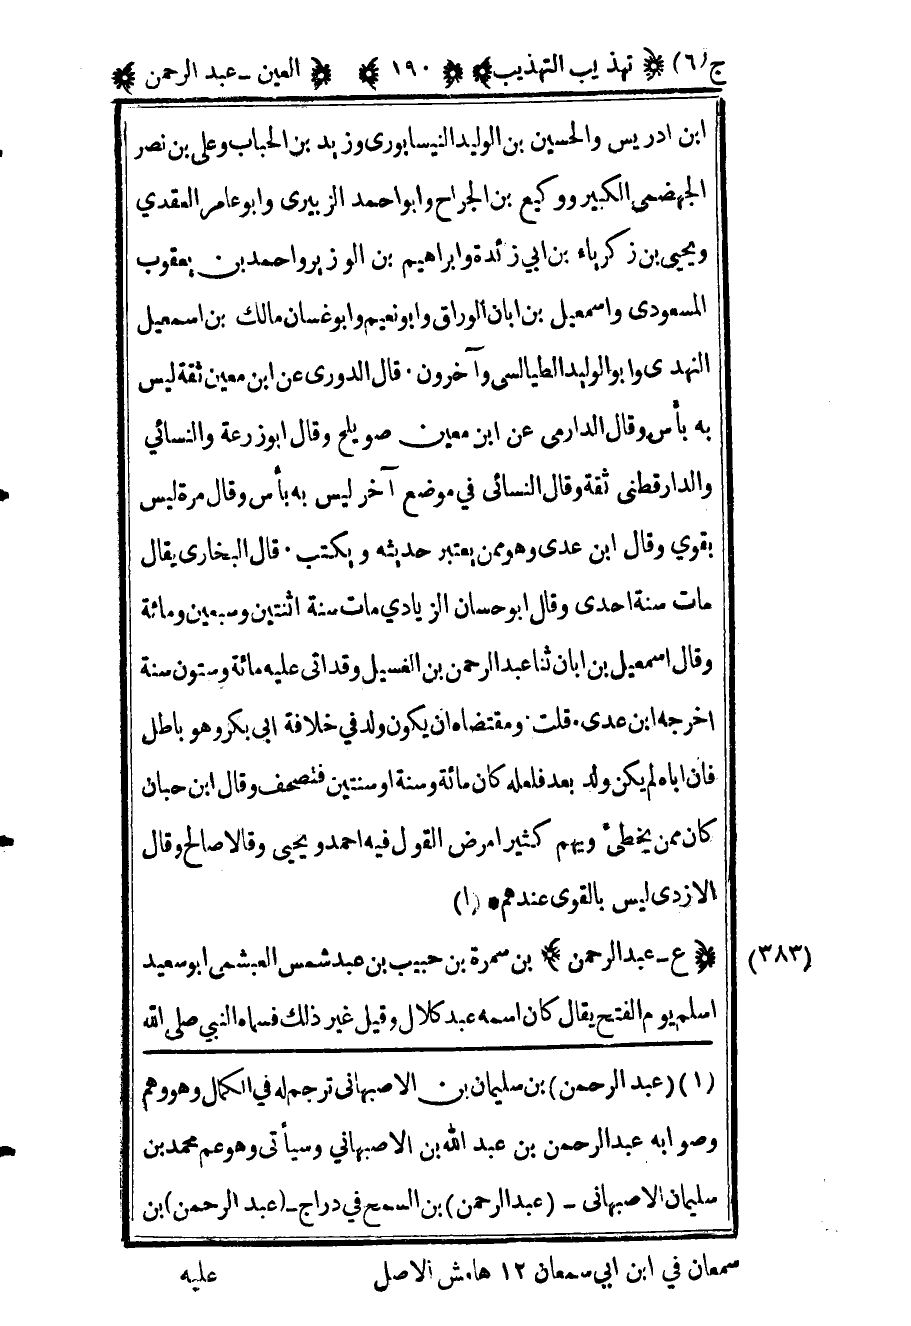 ج(٦) ﴿تهذيب التهذيب﴾ ﴿١٩٠﴾ ﴿العين - عبد الرحمن﴾
ابن ادريس والحسين بن الوليد النيسابورى وزيد بن الحباب وعلى بن نصر
الجهضمى الكبير ووكيع بن الجراح وابو احمد الزبيرى وابو عامر العقدي
ويحيى بن زكرياء بن ابي زائدة وابراهيم بن الوزير واحمد بن يعقوب
المسعودى واسمعيل بن ابان الوراق وابو نعيم وابو غسان مالك بن اسمعيل
النهدى وابو الوليد الطيالسى وآخرون · قال الدورى عن ابن معين ثقة ليس
به بأس وقال الدارمى عن ابن معين صويلح وقال ابو زرعة والنسائي
والدارقطنى ثقة وقال النسائى في موضع آخر ليس به بأس وقال مرة ليس
بقوي وقال ابن عدى وهو ممن يعتبر حديثه ويكتب · قال البخارى يقال
مات سنة احدى وقال ابو حسان الزيادي مات سنة اثنتين وسبعين ومائة
وقال اسمعيل بن ابان ثنا عبد الرحمن بن الغسيل وقد اتى عليه مائة وستون سنة
اخرجه ابن عدى · قلت · ومقتضاه ان يكون ولد في خلافة ابى بكر وهو باطل
فان اباه لم يكن ولد بعد فلعله كان مائة وسنة او سنتين فتصحف وقال ابن حبان
كان ممن يخطئ ويهم كثيرا مرض القول فيه احمد ويحيى وقالا صالح وقال
الازدى ليس بالقوى عندهم • (١)
﴿ع - عبد الرحمن﴾ بن سمرة بن حبيب بن عبد شمس العبشمى ابو سعيد (٣٨٣)
اسلم يوم الفتح يقال كان اسمه عبد كلال وقيل غير ذلك فسماه النبي صلى الله
(١) (عبد الرحمن) بن سليمان بن الاصبهانى ترجم له في الكمال وهو وهم
وصوابه عبد الرحمن بن عبد الله بن الاصبهاني وسيأتى وهو عم محمد بن
سليمان الاصبهانى - (عبد الرحمن) بن السمح في دراج - (عبد الرحمن) بن
سمعان في ابن ابي سمعان ١٢ هامش الاصل
عليه